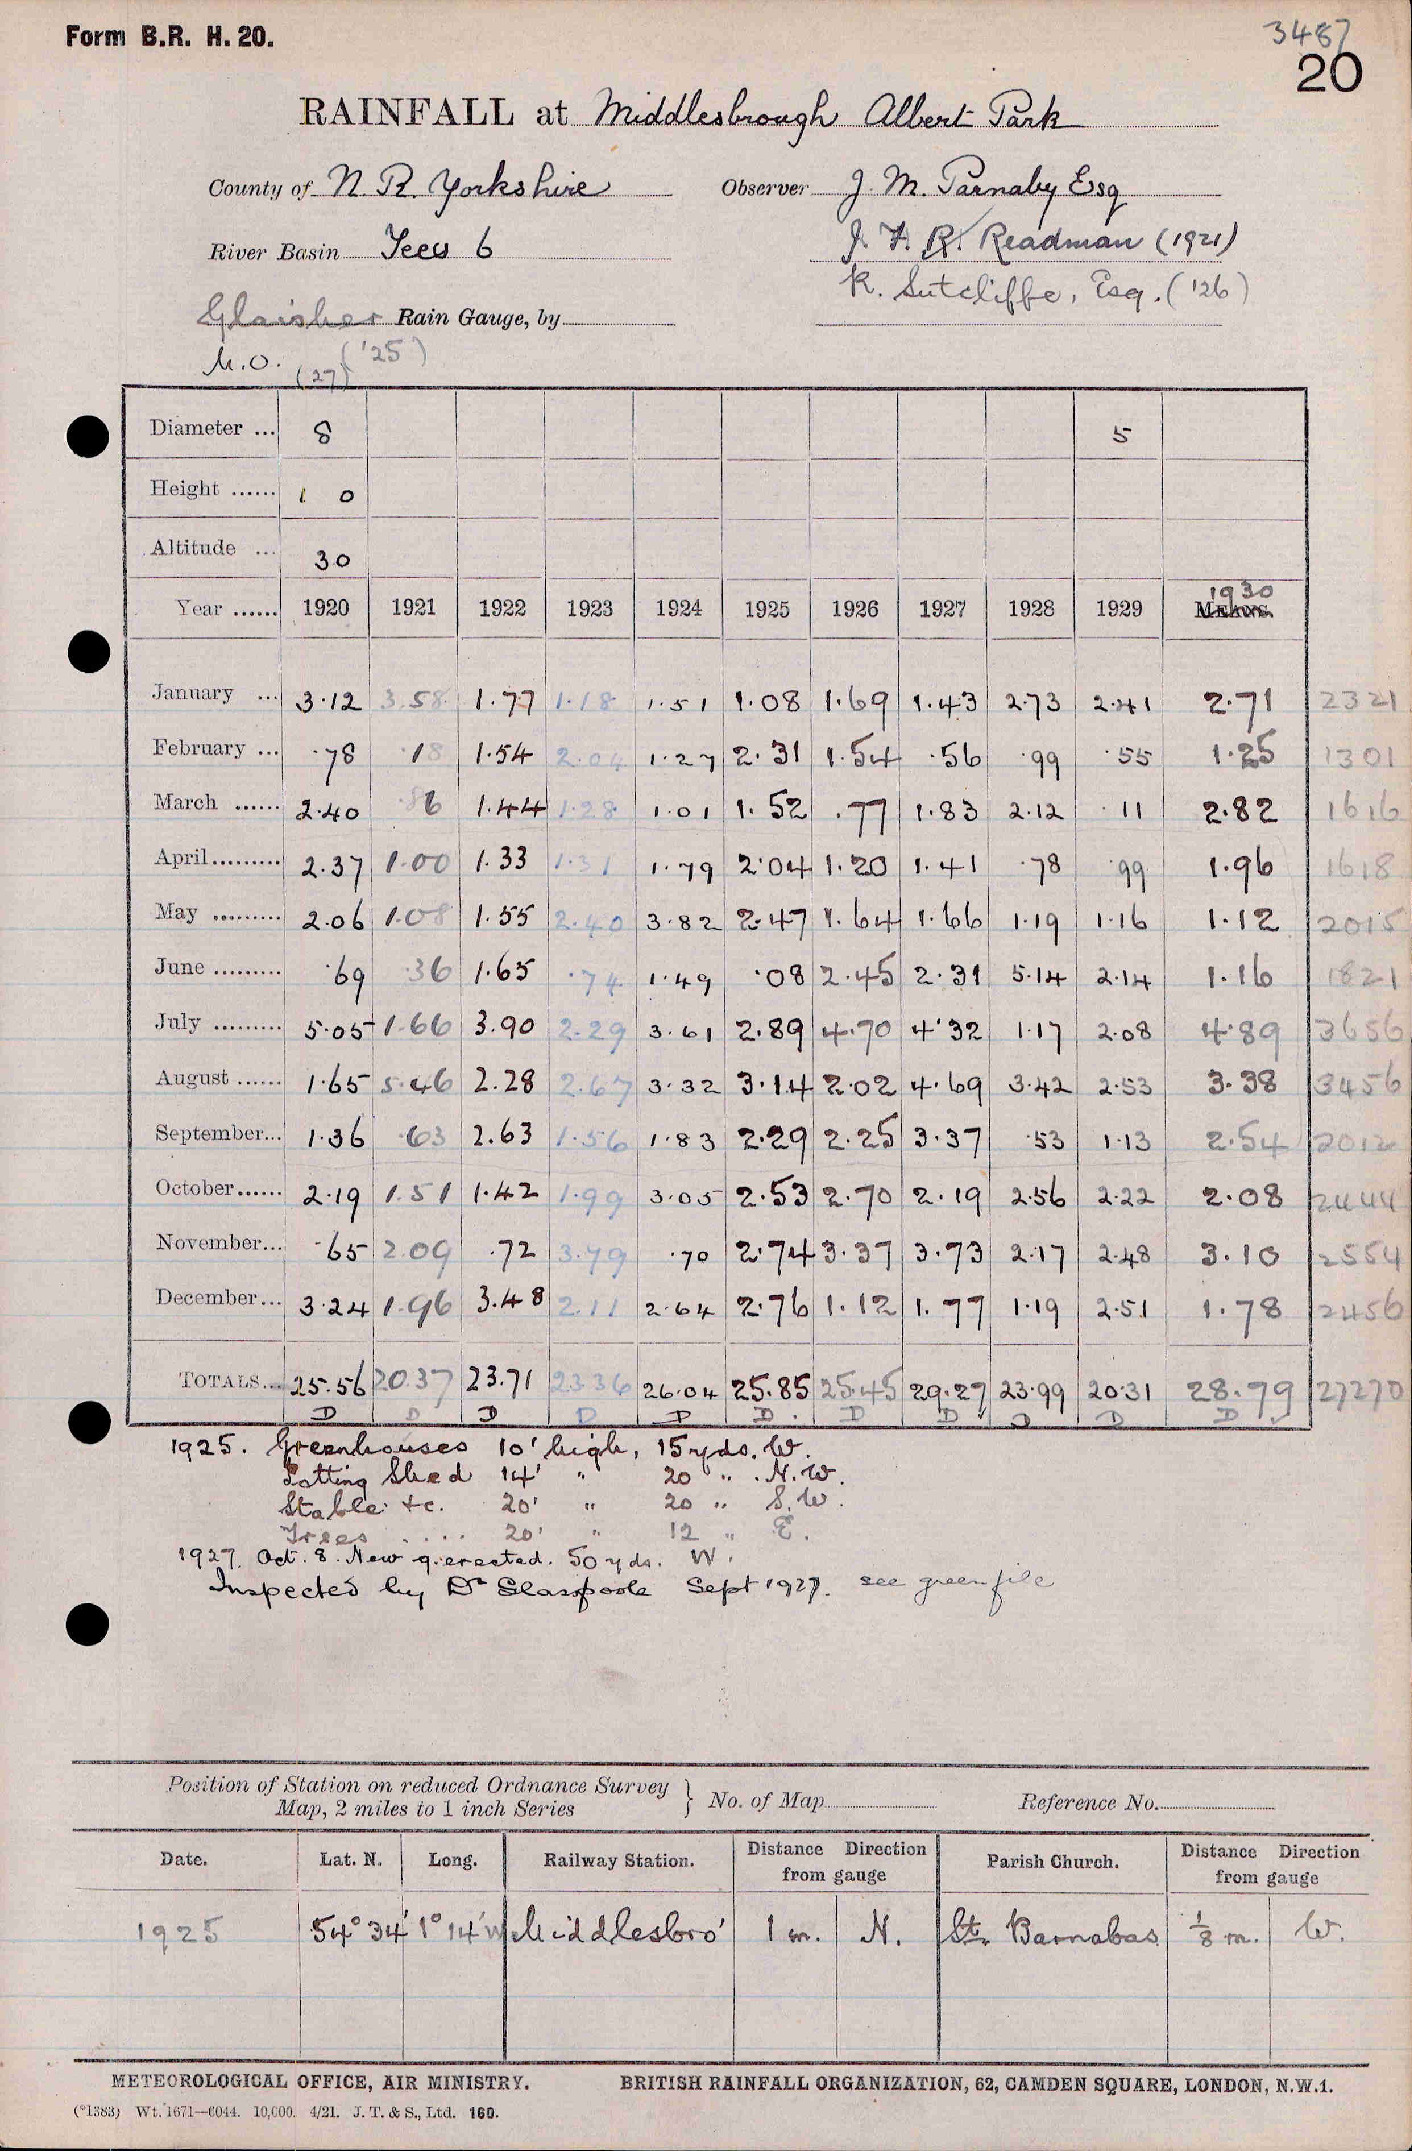 Form B.R. H. 20.
3487
20
RAINFALL at Middlesbrough Albert Park
County of N. R. Yorkshire Observer J. M. Parnaby Esq
River Basin Tees 6 J. A. R. Readman (1921)
R. Sutcliffe, Esq. ('26)
Glaisher Rain Gauge, by
M.O. (27) ('25)
Diameter ... 8 5
Height ...... 1 0
Altitude ... 30
Year ...... 1920 1921 1922 1923 1924 1925 1926 1927 1928 1929 MEANS. 1930
January ... 3·12 3.58 1.77 1·18 1·51 1·08 1·69 1·43 2·73 2·41 2·71 2321
February ... ·78 ·18 1·54 2.04 1·27 2·31 1·54 ·56 ·99 ·55 1·25 1301
March ...... 2·40 ·86 1·44 1·28 1·01 1·52 ·77 1·83 2·12 ·11 2·82 1616
April......... 2·37 1·00 1·33 1·31 1·79 2·04 1·20 1·41 ·78 ·99 1·96 1618
May ......... 2·06 1·08 1·55 2·40 3·82 2·47 1·64 1·66 1·19 1·16 1·12 2015
June ......... ·69 ·36 1·65 ·74 1·49 ·08 2·45 2·31 5·14 2·14 1·16 1821
July ......... 5·05 1·66 3.90 2·29 3·61 2·89 4·70 4·32 1·17 2·08 4·89 3656
August ...... 1·65 5·46 2.28 2·67 3·32 3·14 2·02 4·69 3·42 2·53 3·38 3456
September... 1·36 ·63 2.63 1·56 1·83 2·29 2·25 3·37 ·53 1·13 2·54 2012
October...... 2·19 1.51 1·42 1·99 3·05 2·53 2·70 2·19 2·56 2·22 2·08 2444
November... ·65 2.09 ·72 3·79 ·70 2·74 3·37 3·73 2·17 2·48 3·10 2554
December... 3·24 1·96 3.48 2·11 2·64 2·76 1·12 1·77 1·19 2·51 1·78 2456
TOTALS... 25·56 20.37 23.71 23.36 26·04 25.85 25·45 29·27 23·99 20·31 28·79 27270
D D D D D D D D D D D
1925. Greenhouses 10' high, 15 yds. W.
Potting Shed 14' " 20 " N.W.
Stable &c. 20' " 20 " S.W.
Trees .... 20' " 12 " E.
1927. Oct. 8. New g. erected. 50 yds. W.
Inspected by Dr Glasspoole Sept 1927. see green file
Position of Station on reduced Ordnance Survey
Map, 2 miles to 1 inch Series } No. of Map Reference No.
Date. Lat. N. Long. Railway Station. Distance Direction from gauge Parish Church. Distance Direction from gauge
1925 54° 34' 1° 14' W Middlesboro' 1 m. N. St. Barnabas 1/8 m. W.
METEOROLOGICAL OFFICE, AIR MINISTRY. BRITISH RAINFALL ORGANIZATION, 62, CAMDEN SQUARE, LONDON, N.W.1.
(*1383) Wt. 1671—6044. 10,000. 4/21. J. T. & S., Ltd. 160.